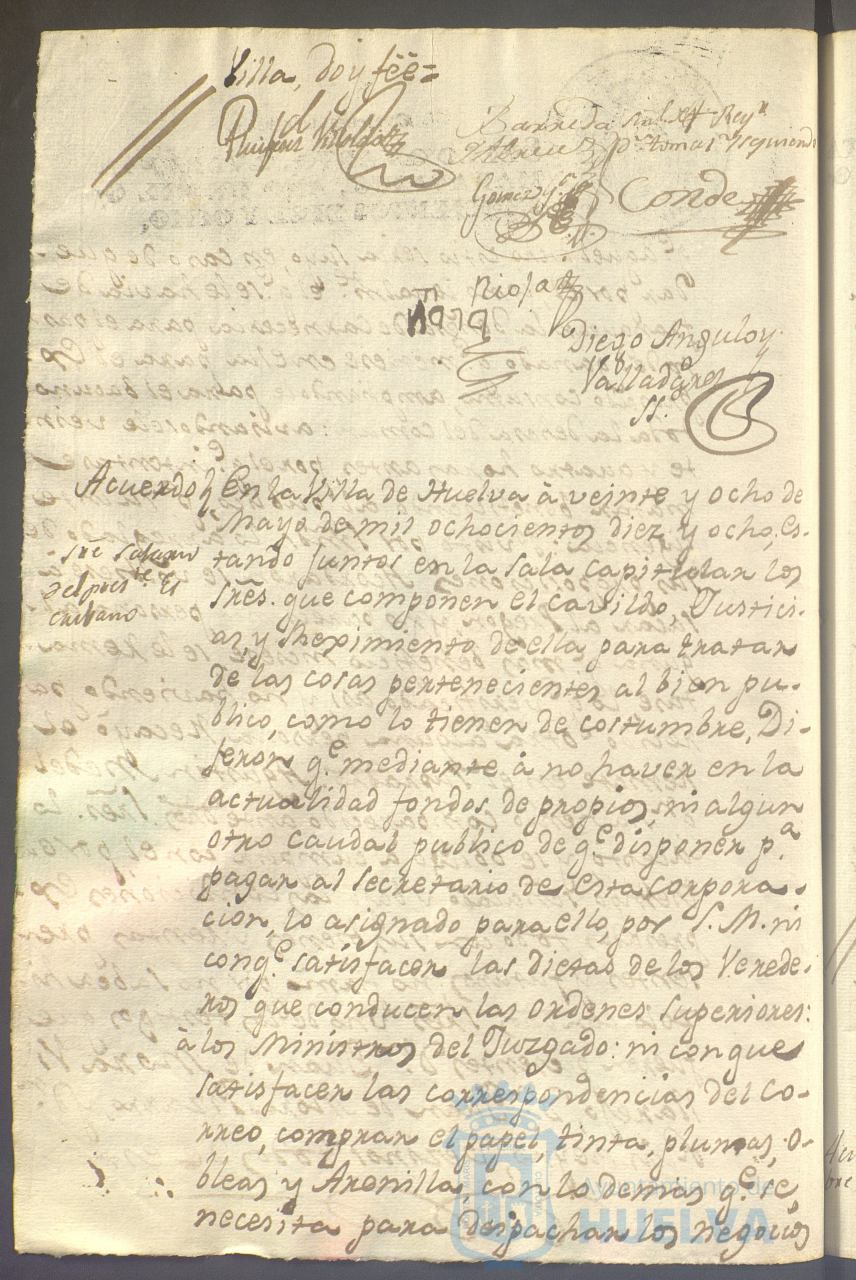 Villa, doy fée=
Barreda
Gomez
Conde
Rioja
Diego Angulo y
Valladares
SS.
Acuerdo
En la Villa de Huelva à veinte y ocho de
Mayo de mil ochocientos diez y ocho, es-
tando juntos en la sala capitular los
Sres. que componen el cavildo, Justici-
as, y Reximiento de ella para tratar
de las cosas pertenecientes al bien pu-
blico, como lo tienen de costumbre, Di-
jeron qe. mediante à no haver en la
actualidad fondos de propios, ni algun
otro caudal publico de qe. disponer pa.
pagar al Secretario de esta corpora-
cion, lo asignado para ello, por S. M. ni
con qe. satisfacer las dietas de los Verede-
ros que conducen las ordenes superiores:
à los Ministros del Juzgado: ni con que
satisfacer las correspondencias del co-
rreo, comprar el papel, tinta, plumas, o-
bleas y Arenilla, con lo demas qe. se
necesita para despachar los negocios
sre. salario
del preste. Es
cribano
Ayuntamiento de
HUELVA